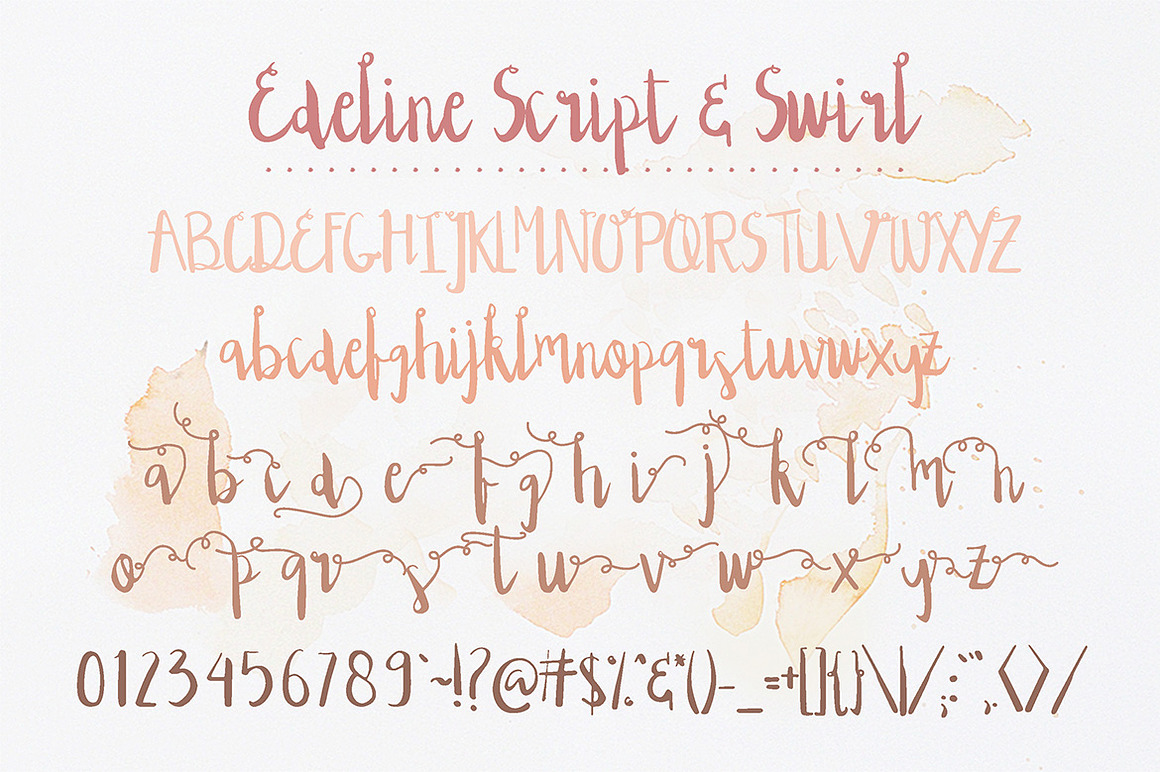 Edeline Script & Swirl
ABCDEFGHIJKLMNOPQRSTUVWXYZ
abcdefghijklmnopqrstuvwxyz
a b c d e f g h i j k l m n
o p q r s t u v w x y z
0123456789`~!?@#$%^&*()-_=+[]{}\|/;:"',.<>/